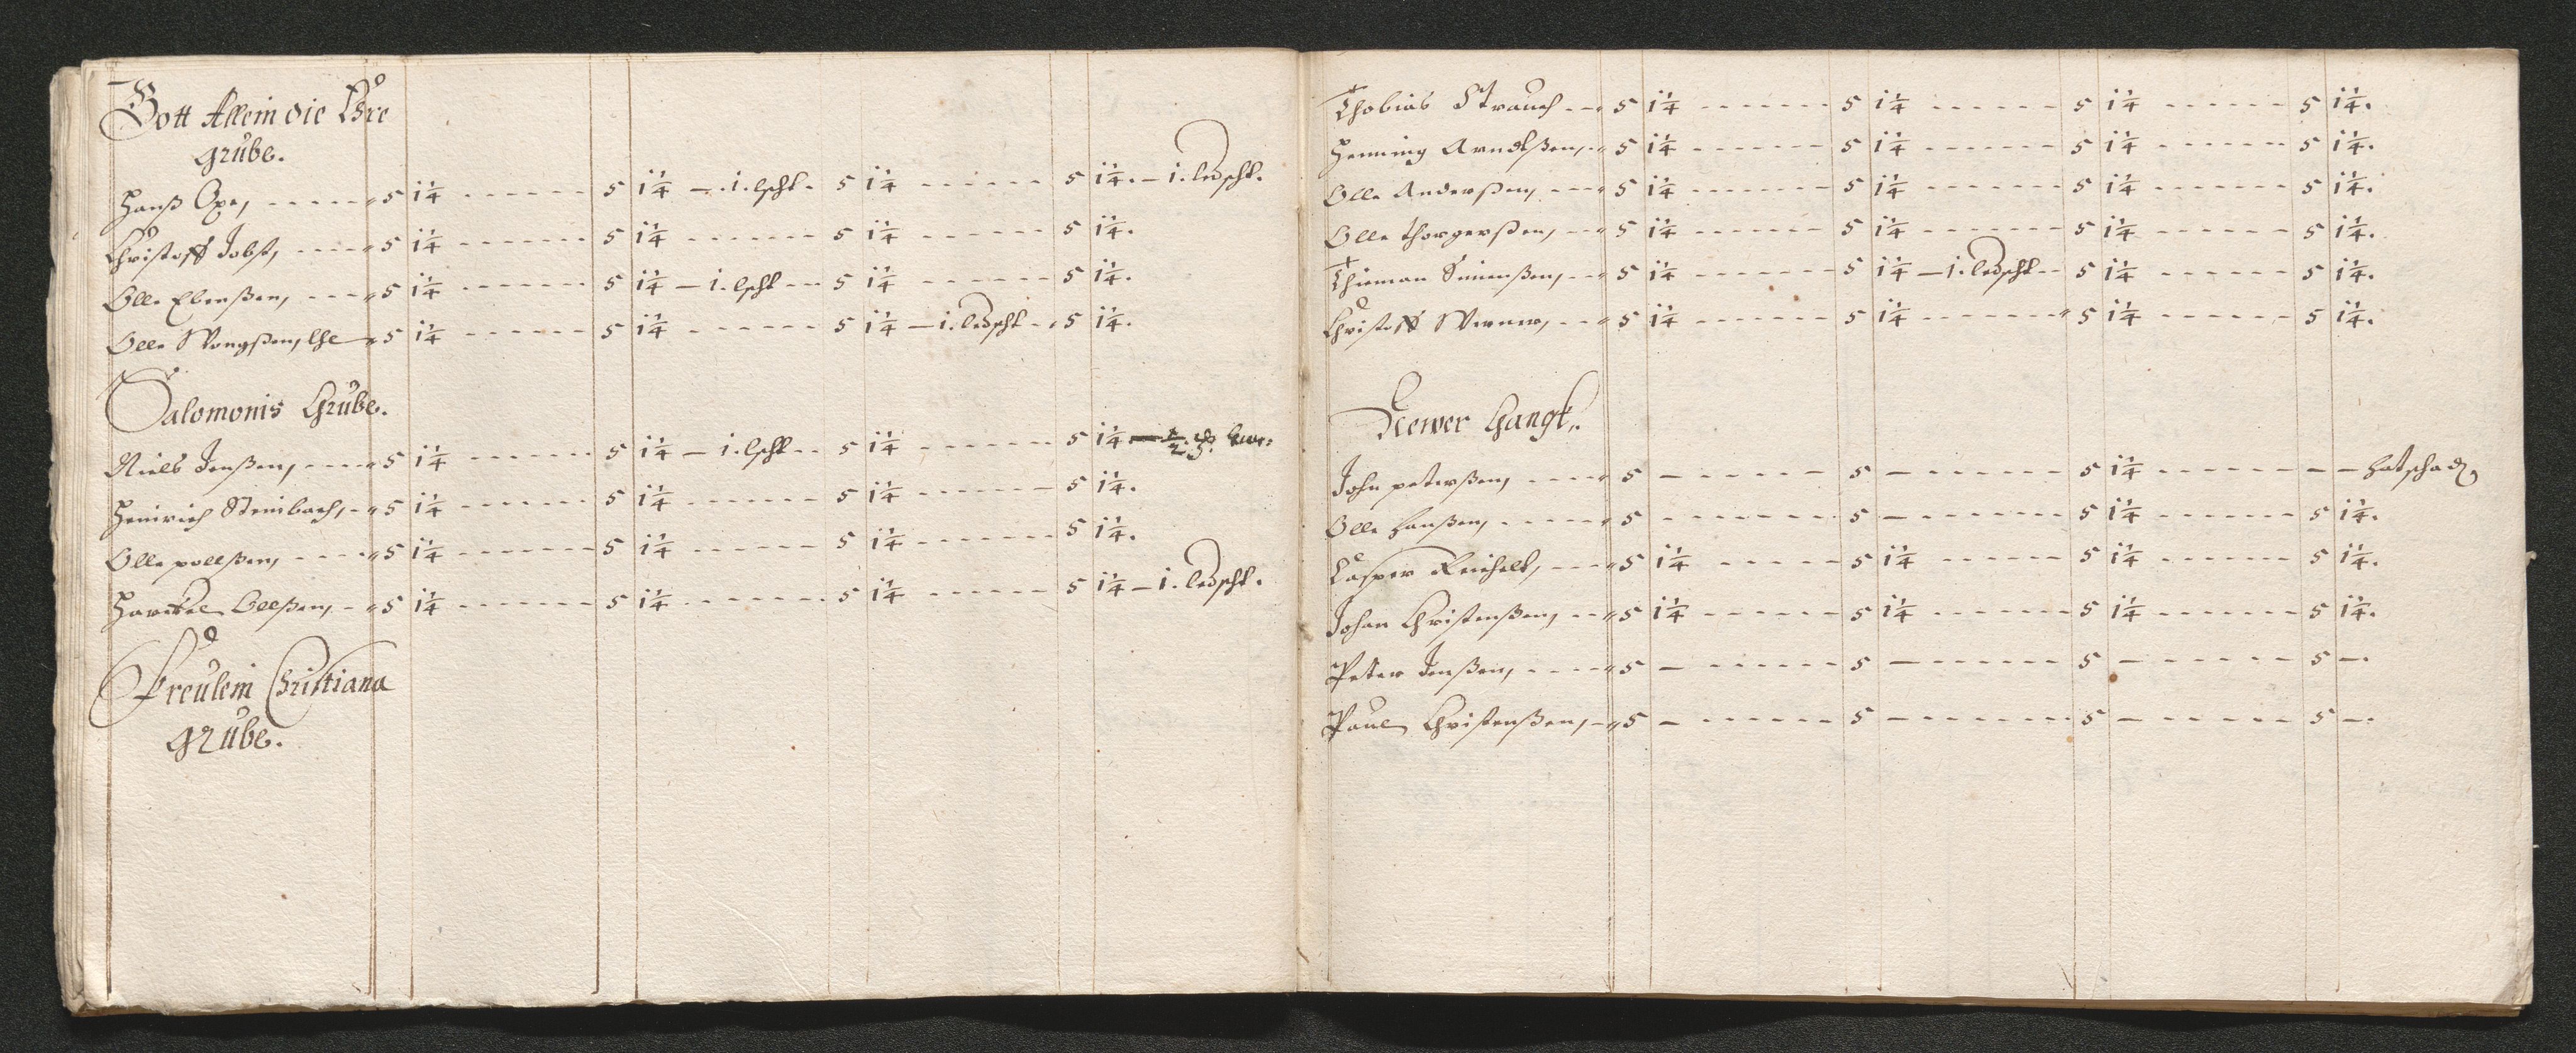 Gott Allein die Ehre
grube.
Hanß Oxe, - - - - - 5 1¼ - - - - - - 5 1¼ - 1. lscht. 5 1¼ - - - - - - 5 1¼. - 1. ledscht.
Christoff Jobst, - - - - 5 1¼ - - - - - - 5 1¼ - - - - - - 5 1¼ - - - - - - 5 1¼.
Olle Elenßen, - - - - 5 1¼ - - - - - - 5 1¼ - 1. lscht - - 5 1¼ - - - - - - 5 1¼.
Olle - 5 1¼ - - - - - - 5 1¼ - - - - - - 5 1¼ - 1. ledscht - - 5 1¼.
Salomonis Grube.
Niels Jenßen, - - - - 5 1¼ - - - - - - 5 1¼ - 1. lscht - - 5 1¼ - - - - - - 5 1¼
Heinrich Steinbach, - - 5 1¼ - - - - - - 5 1¼ - - - - - - 5 1¼ - - - - - - 5 1¼.
Olle pollßen, - - - - 5 1¼ - - - - - - 5 1¼ - - - - - - 5 1¼ - - - - - - 5 1¼.
Harckel Olleßen, - - 5 1¼ - - - - - - 5 1¼ - - - - - - 5 1¼ - - - - - - 5 1¼ - 1. ledscht.
Freulein Christiana
grube.
Thobias Strauch - - - 5 1¼ - - - - - - 5 1¼ - - - - - - 5 1¼ - - - - - - 5 1¼.
Henning Arndtßen, - - 5 1¼ - - - - - - 5 1¼ - - - - - - 5 1¼ - - - - - - 5 1¼.
Olle Anderßen, - - - - 5 1¼ - - - - - - 5 1¼ - - - - - - 5 1¼ - - - - - - 5 1¼.
Olle thorgerßen, - - - 5 1¼ - - - - - - 5 1¼ - - - - - - 5 1¼ - - - - - - 5 1¼.
Thieman Simenßen, - - 5 1¼ - - - - - - 5 1¼ - 1. ledscht - - 5 1¼ - - - - - - 5 1¼.
Christoff Werner, - - - 5 1¼ - - - - - - 5 1¼ - - - - - - 5 1¼ - - - - - - 5 1¼.
Newer Gangk.
John peterßen, - - - - 5 - - - - - - 5 - - - - - - 5 1¼ - - - - - - - - hatschad
Olle hanßen, - - - - - 5 - - - - - - 5 - - - - - - 5 1¼ - - - - - - 5 1¼.
Casper Reichelt, - - - 5 1¼ - - - - - 5 1¼ - - - - - 5 1¼ - - - - - - 5 1¼.
Johan Christenßen, - - 5 1¼ - - - - - - 5 1¼ - - - - - - 5 1¼ - - - - - - 5 1¼.
Peter Jenßen, - - - - 5 - - - - - - 5 - - - - - - 5 - - - - - - 5 -.
Paul Christenßen, - - 5 - - - - - - 5 - - - - - - - 5 - - - - - - 5 -.